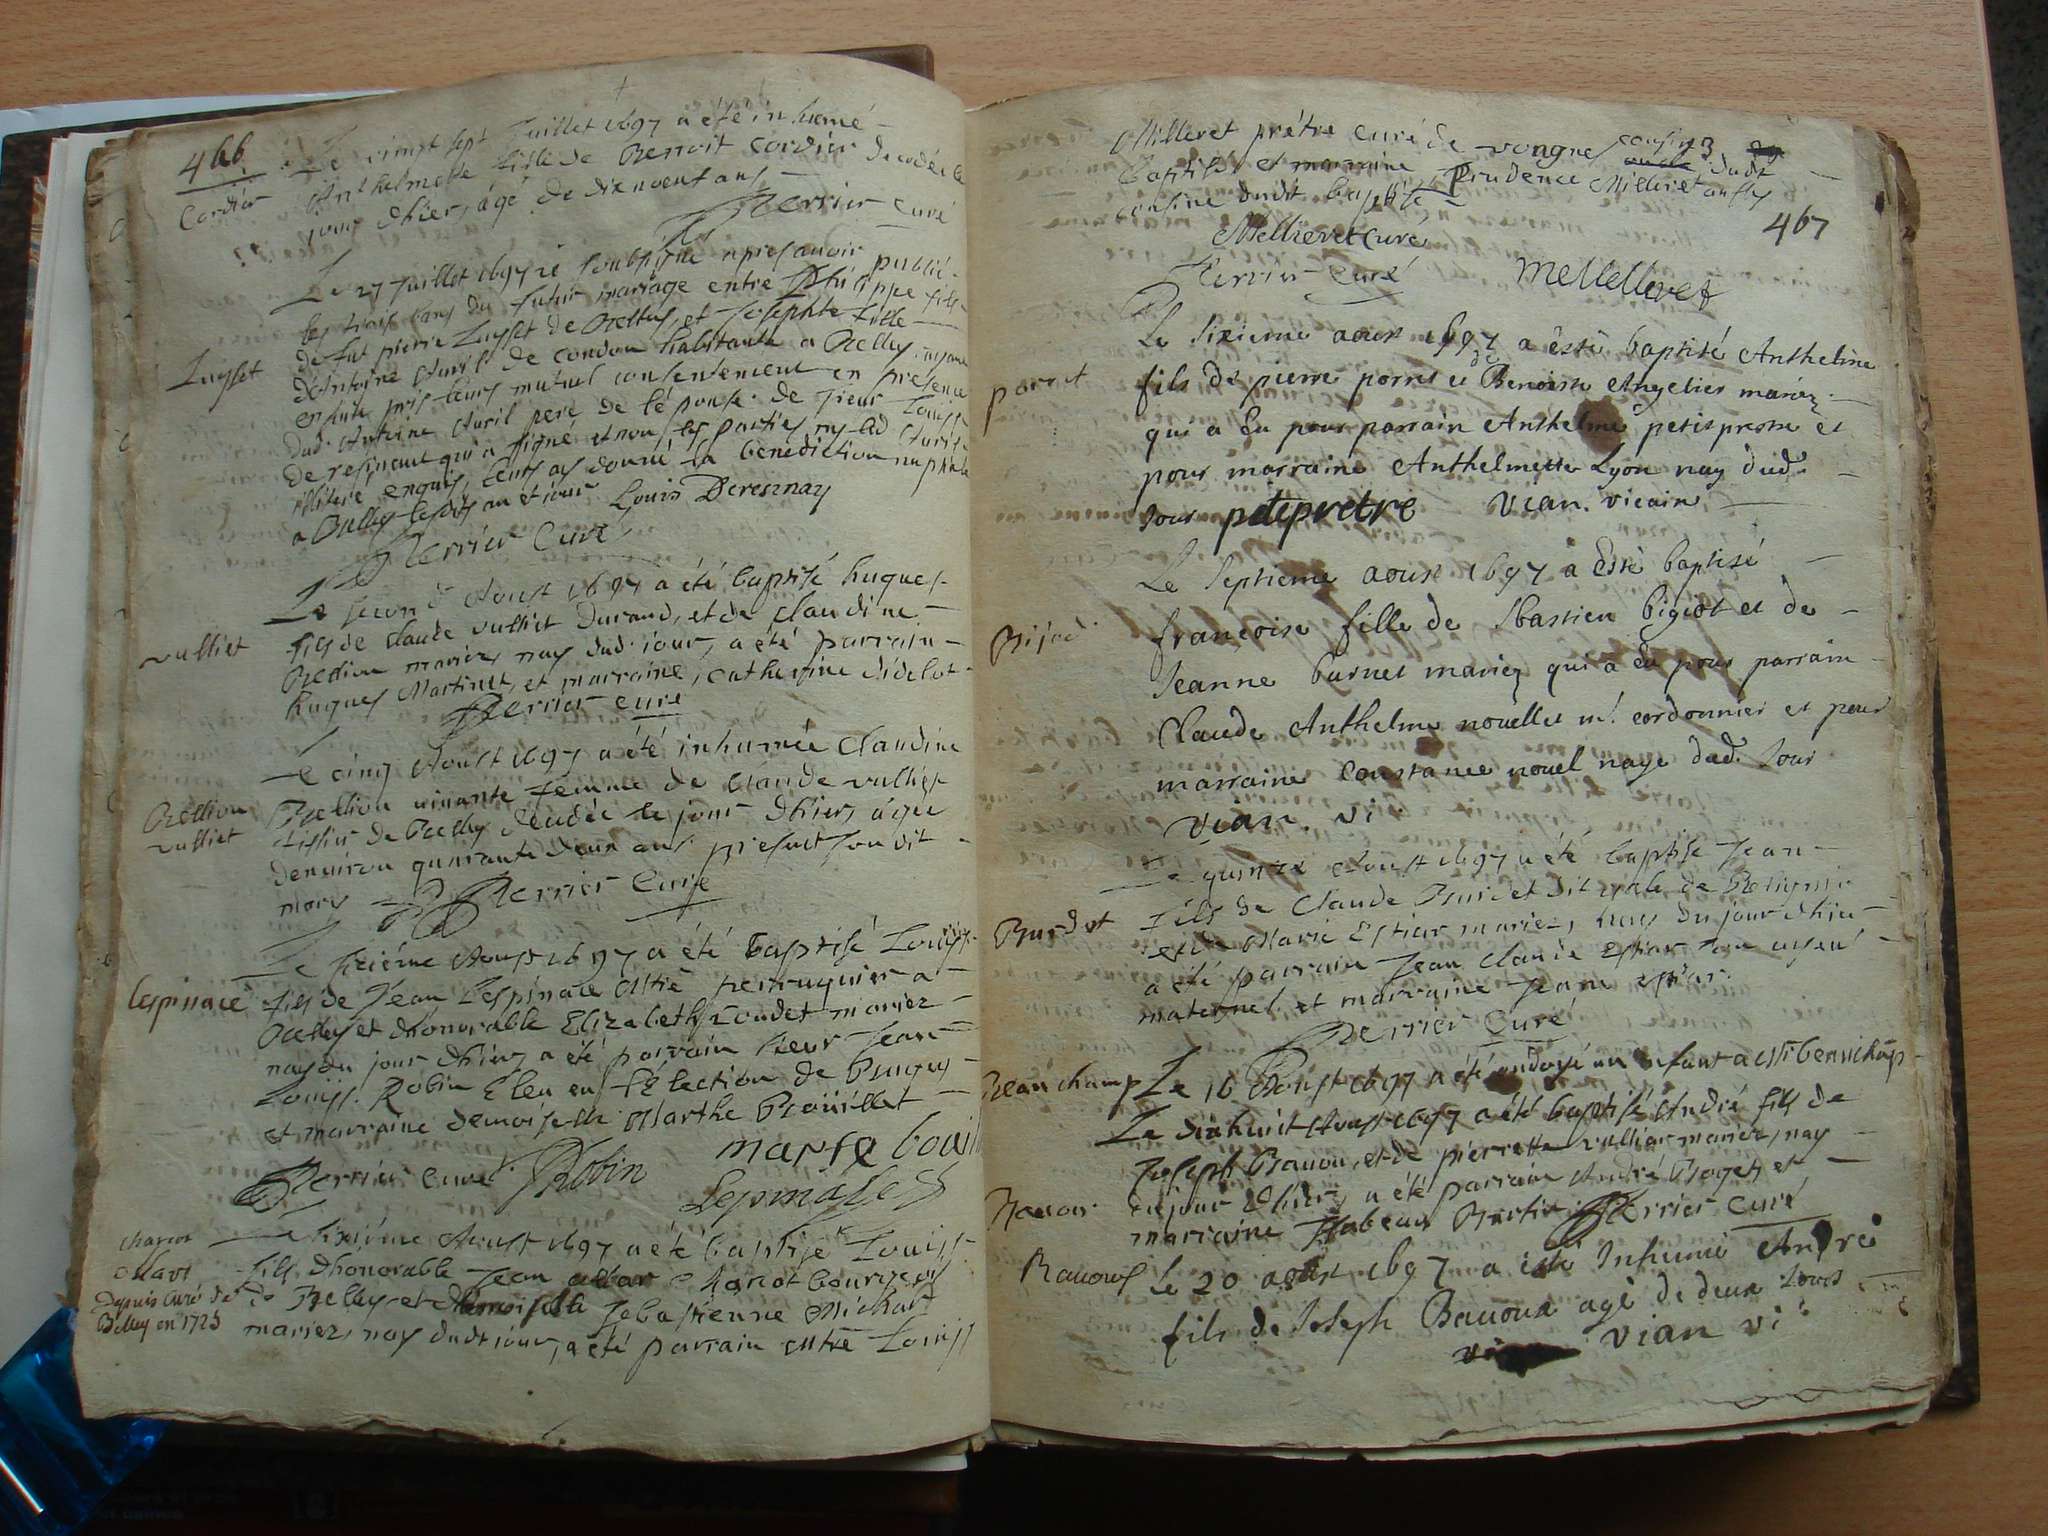 466
Le vingt sept Juillet 1697 a été inhumé
Cordier
Anthelmette fille de Benoit Cordier decedée le
jour d'hier, âgé de dixneuf ans
Perrier curé
Le 27 Juillet 1697 ie soubsigné apres auoir publié
les trois bans du futur mariage entre Philippe fils
Luysset
de fut pierre Luysset de Belley, et Josephte fille
d'Antoine Auril de condon habitante a Belley, ayant
ensuite pris leurs mutuel consentement en presence
dud. Antoine Auril pere de l'épouse de sieur Louis
de resinant qui a signé et non les parties ny led Auril
illiteré enquis, leurs ay donné la benediction nuptiale
a Belley lesdits an et iour Louis Deresznay
Perrier Curé
Le second Aoust 1697 a été baptisé hugues
vulliet
fils de Claude vulliet Durand, et de Claudine
Bellion mariez, nay dud. iour, a été parrain
hugues Martinet, et marraine, catherine didelot
Perrier curé
Le cinq Aoust 1697 a été inhumée Claudine
Bellion
vulliet
Bellion viuante femme de Claude vulliet
tissier de Belley decedée le jour d'hier, âgée
denuiron quarante deux ans present son dit
mary Perrier Curé
Le sixiéme Aoust 1697 a été baptisé Louis
Lespinace
fils de Jean Lespinace Mtre perruquier a
Belley et d'honorable Elizabeth Coudet mariez
nay du jour d'hier, a été parrain sieur Jean
Louis Robin Eleu en l'Election de Bugey
et marraine demoiselle Marthe Boüillet
Perrier curé Robin marte bouil
Lespinasse
Le sixiéme Aoust 1697 a été baptisé Louis
Depuis Curé de
Belley en 1725
fils d'honorable Jean bourgeois
de Belley et demoiselle Sebastienne Michard
mariez, nay dudt iour, a été parrain Mtre Louis
Milleret prêtre curé de vongnes cousin dudt
baptisé et marraine Prudence Milleret aussy
cousine dudit baptisé
467
Milleret curé
Perrier Curé Melleret
Le sixieme aoust 1697 a êstè baptisé Anthelme
porret
fils de pierre porret et de Benoiste Angelier mariez
qui a Eu pour parrain Anthelme petitprestre et
pour marraine Anthelmette Lyon nay dud.
Jour petipretre Vian. vicaire
Le Septieme aoust 1697 a Estè baptisé
Bijod
francoise fille de Sbastien bigiot et de
Jeanne burnet mariez qui a Eu pour parrain
Claude Anthelme nouellet mt. cordonnier et pour
marraine Constance nouel naye dud. Jour
Vian. vi.
Le quinze Aoust 1697 a été baptisé Jean
Burdet
fils de Claude Burdet
et de Marie Estiar mariez, nay du jour d'hier
a été parrain Jean Claude Estiar son ayeul
maternel, et marraine Jeane Estiar
Perrier Curé
Beauchamp
Le 16 Aoust 1697 a été ondoyé un enfant a Mr
Le dixhuit Aoust 1697 a été baptisé André fils de
Joseph Bauou, et de pierrette vulliar mariez, nay
du jour d'hier, a été parrain André Boget, et
marraine Isabeau Perrier Curé
Bauoux
Le 20 aoust 1697 a esté Inhumé André
fils de Joseph Bauoux agé de deux Jours
Vian vi